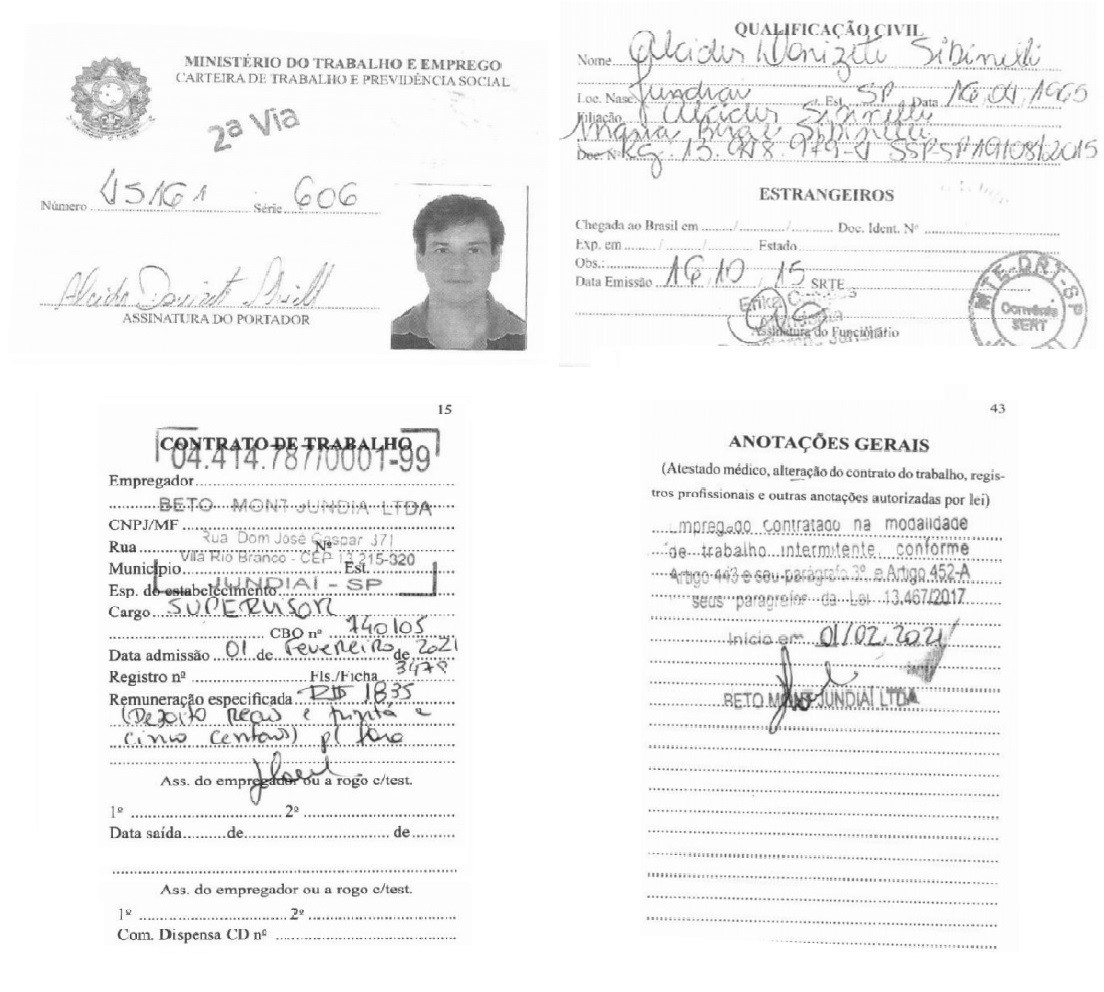 MINISTÉRIO DO TRABALHO E EMPREGO
CARTEIRA DE TRABALHO E PREVIDÊNCIA SOCIAL
2ª Via
Número 45161 Série 606
ASSINATURA DO PORTADOR
QUALIFICAÇÃO CIVIL
Nome Alcides Donizeti Sibinelli
Loc. Nasc. Jundiaí Est. SP Data 16/04/1965
Filiação Alcides Sibinelli
Maria Sibinelli
Doc. Nº RG. SSPSP 19/08/2015
ESTRANGEIROS
Chegada ao Brasil em ......./......./....... Doc. Ident. Nº
Exp. em ......./......./....... Estado
Obs.:
Data Emissão 16/10/15 SRTE
Erika
Assinatura do Funcionário
MTE-DRT-SP
Convênio
SERT
15
CONTRATO DE TRABALHO
04.414.787/0001-99
Empregador
BETO MONT JUNDIA LTDA
CNPJ/MF
Rua Rua Dom José Gaspar 371 Nº
Vila Rio Branco - CEP 13.215-320
Município Est.
JUNDIAI - SP
Esp. do estabelecimento
Cargo SUPERVISOR
CBO nº 740105
Data admissão 01 de Fevereiro de 2021
Registro nº Fls./Ficha 3478
Remuneração especificada R$ 1835
(Dezoito reais e trinta e
cinco centavos) p/ hora
Ass. do empregador ou a rogo c/test.
1º 2º
Data saída de de
Ass. do empregador ou a rogo c/test.
1º 2º
Com. Dispensa CD nº
43
ANOTAÇÕES GERAIS
(Atestado médico, alteração do contrato do trabalho, regis-
tros profissionais e outras anotações autorizadas por lei)
mpregado contratado na modalidade
de trabalho intermitente, conforme
Artigo 443 e seu parágrafo 3º e Artigo 452-A
seus paragrafos da Lei 13.467/2017
Inicio em 01/02/2021
BETO MONT JUNDIAI LTDA